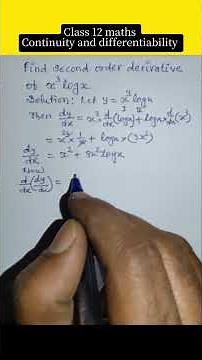 Class 12 maths
Continuity and differentiability
Find second order derivative
of x³logx
Solution: Let y = x³logx
Then dy/dx = x³ d/dx (logx) + logx d/dx (x³)
= x³ × 1/x + logx × (3x²)
dy/dx = x² + 3x²logx
d/dx (dy/dx) =